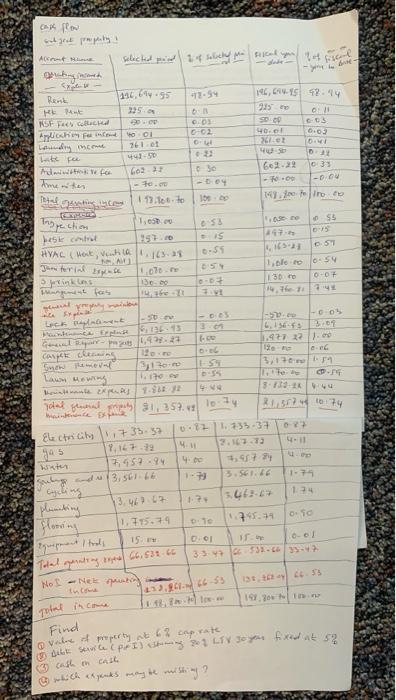 cash flow
subject property 1
Account Name Selected period % of selected per iod Fiscal year date % of fiscal year to date
Operating income &
Expense
Rent 196,694.95 98.94 196,694.95 98.94
Pet Rent 225.00 0.11 225.00 0.11
NSF Fees collected 50.00 0.03 50.00 0.03
Application fee income 40.01 0.02 40.01 0.02
Laundry income 261.02 0.41 261.02 0.41
Late fee 442.50 0.22 442.50 0.22
Administrative fee 602.22 0.30 602.22 0.33
Amenities -70.00 -0.04 -70.00 -0.04
Total operating income 198,800.70 100.00 198,800.70 100.00
Expense
Inspection 1,050.00 0.53 1,050.00 0.53
pest control 297.00 0.15 297.00 0.15
HVAC (Heat, Ventila 1,163.28 0.59 1,163.28 0.59
ion, Air)
Janitorial expense 1,080.00 0.54 1,080.00 0.54
Sprinklers 130.00 0.07 130.00 0.07
Management fees 14,760.81 7.42 14,760.81 7.42
general property maintena
nce Expense
Lock Replacement -50.00 -0.03 -50.00 -0.03
Maintenance Expense 6,136.93 3.09 6,136.93 3.09
General Repair-projects 1,979.27 1.00 1,979.27 1.00
carpet cleaning 120.00 0.06 120.00 0.06
Snow Removal 3,170.00 1.59 3,170.00 1.59
Lawn Mowing 1,170.00 0.59 1,170.00 0.59
Maintenance expenses 8.832.22 4.44 8.832.22 4.44
Total general property 21,357.42 10.74 21,357.42 10.74
maintenance Expense
Electricity 1,733.37 0.87 1,733.37 0.87
gas 8,167.82 4.11 8,167.82 4.11
Water 7,957.84 4.00 7,957.84 4.00
garbage and re 3,561.66 1.79 3,561.66 1.79
cycling
plumbing 3,462.67 1.74 3,462.67 1.74
flooring 1,795.79 0.90 1,795.79 0.90
Equipment/tools 15.00 0.01 15.00 0.01
Total operating expense 66,532.66 33.47 66,532.66 33.47
NOI - Net operating 66.53 66.53
Income
Total income 198,800.70 100.00 198,800.70 100.00
Find
① Value of property at 6% cap rate
② debt service (P&I) assuming 80% LTV 30 years fixed at 5%
③ cash on cash
④ which expenses maybe missing?